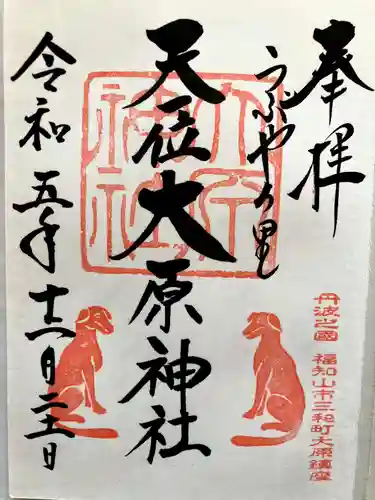 奉拝
うぶやの里
天一位大原神社
令和五年月日
丹波之國 福知山市三和町大原鎮座
大原神社